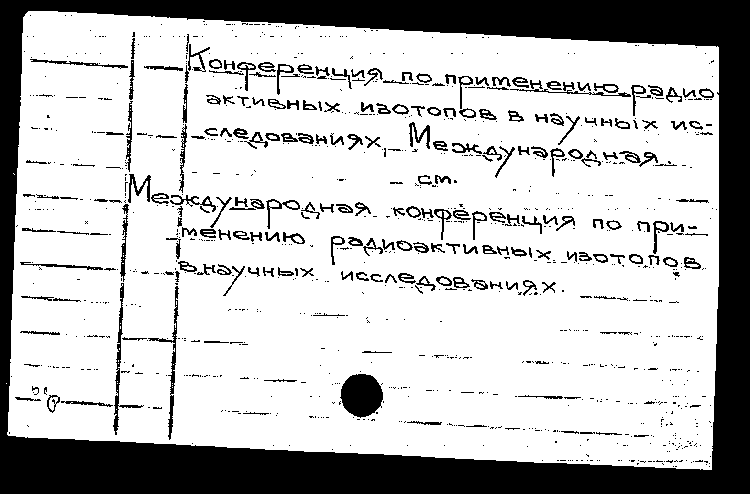 Конференция по применению радио-
активных изотопов в научных ис-
следованиях, Международная.
см.
Международная конференция по при-
менению радиоактивных изотопов
в научных исследованиях.